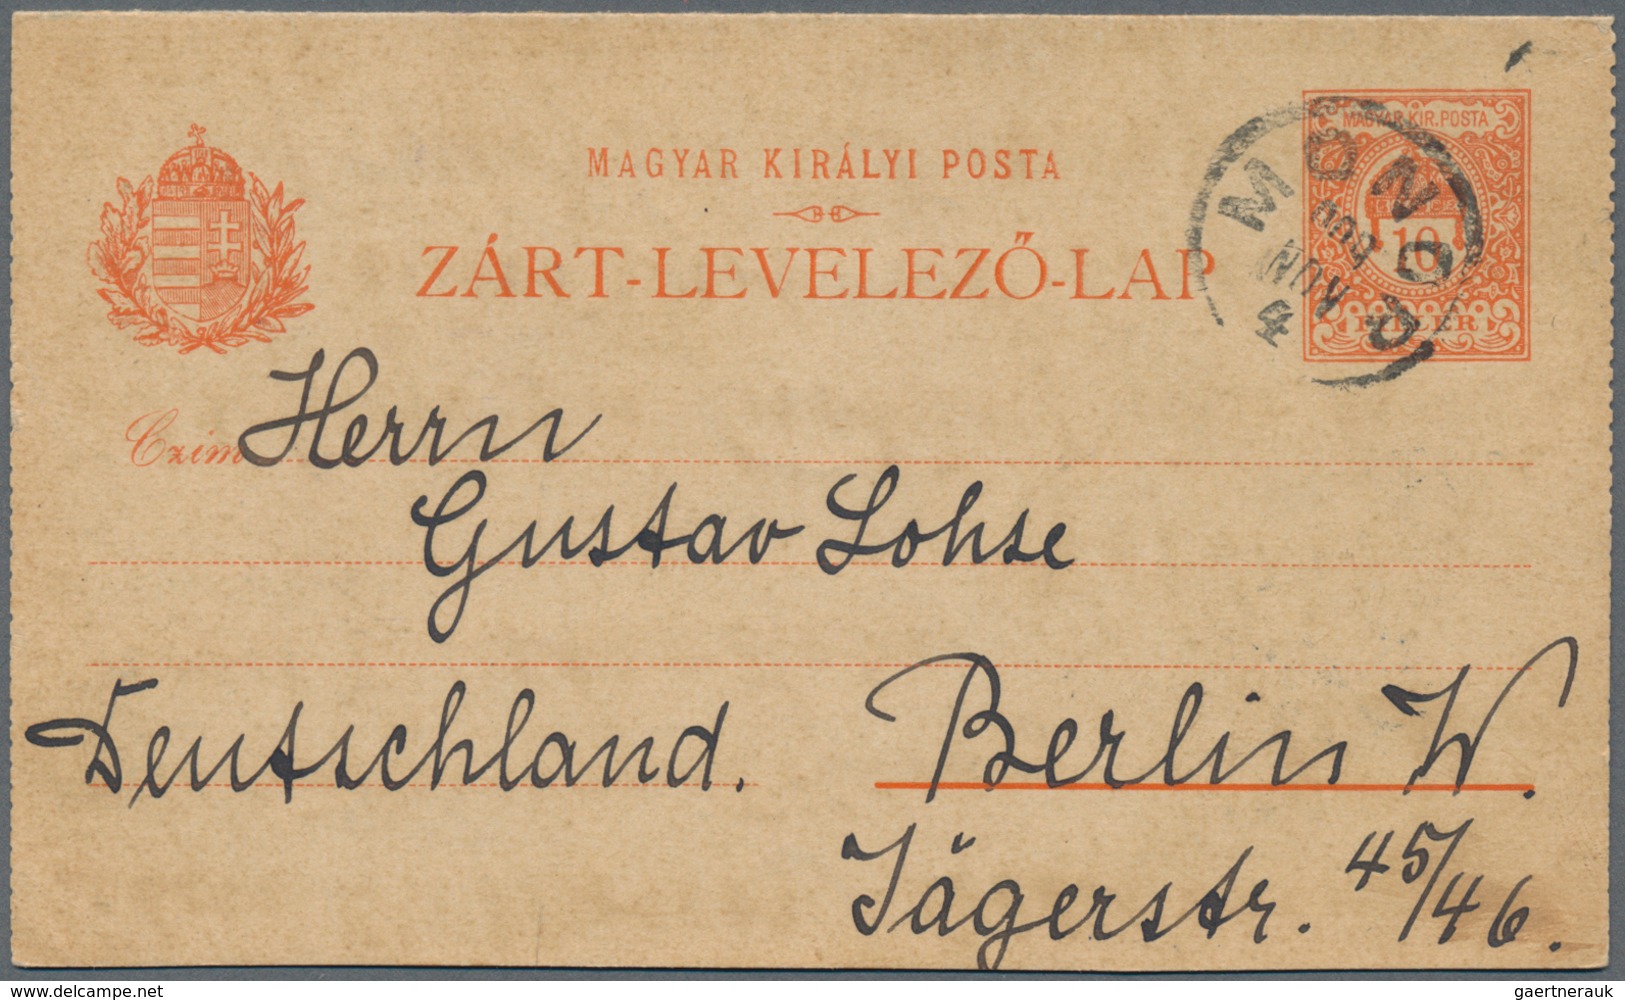 MAGYAR KIRÁLYI POSTA
ZÁRT-LEVELEZŐ-LAP
MAGYAR KIR. POSTA
10
FILLÉR
NOV
4
Czim
Herrn
Gustav Lohse
Deutschland. Berlin W.
Jägerstr. 45/46.
www.delcampe.net
gaertnerauk